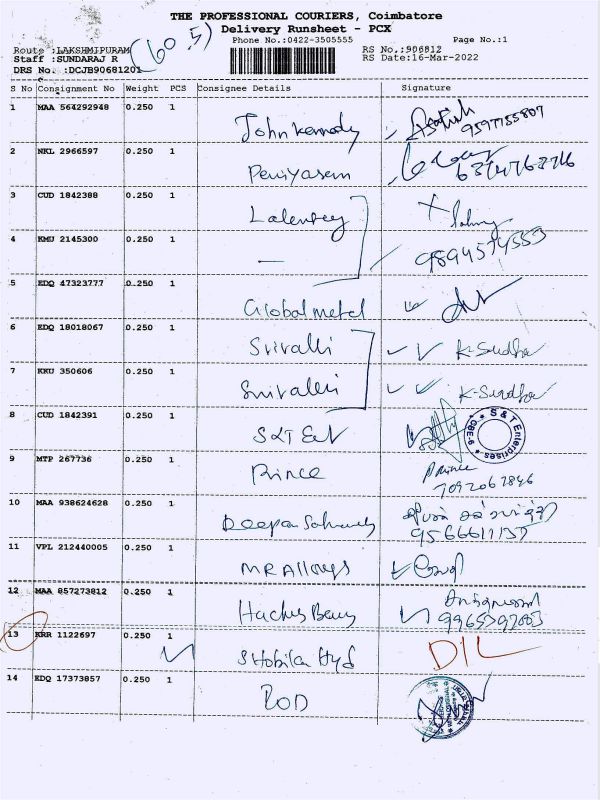 THE PROFESSIONAL COURIERS, Coimbatore
Delivery Runsheet - PCX
Phone No.:0422-3505555 Page No.:1
Route :LAKSHMIPURAM RS No.:906812
Staff :SUNDARAJ R RS Date:16-Mar-2022
DRS No. :DCJB90681201
(60.5)
S No Consignment No Weight PCS Consignee Details Signature
1 MAA 564292948 0.250 1
John kennedy 9597755807
2 NKL 2966597 0.250 1
Periyasem
3 CUD 1842388 0.250 1
4 KMU 2145300 0.250 1
— 9894574553
5 EDQ 47323777 0.250 1
Global metal
6 EDQ 18018067 0.250 1
Srivalli K-Sudha
7 KKU 350606 0.250 1
Srivalli K-Sudha
8 CUD 1842391 0.250 1
S&T Ent S & T Enterprises * CBE-6 *
9 MTP 267736 0.250 1
Prince Prince
7092067846
10 MAA 938624628 0.250 1
Deepan
11 VPL 212440005 0.250 1
MR Alloys
12 MAA 857273812 0.250 1
13 KRR 1122697 0.250 1
Shobika Hyd DIL
14 EDQ 17373857 0.250 1
BOD